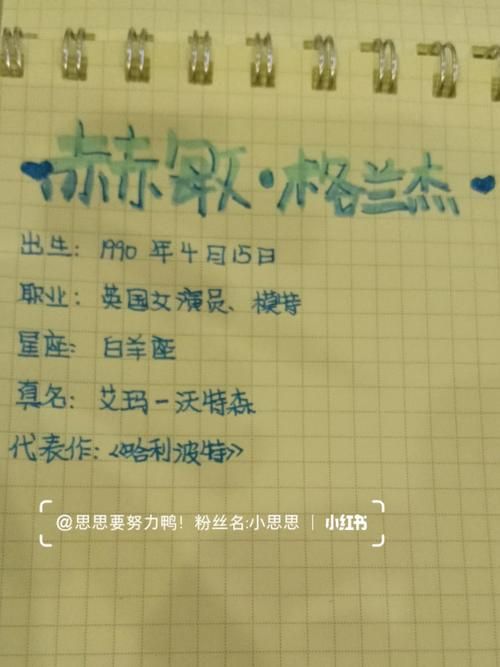 赫敏·格兰杰
出生：1990年4月15日
职业：英国女演员、模特
星座：白羊座
真名：艾玛－沃特森
代表作：《哈利波特》
@思思要努力鸭！粉丝名:小思思 | 小红书